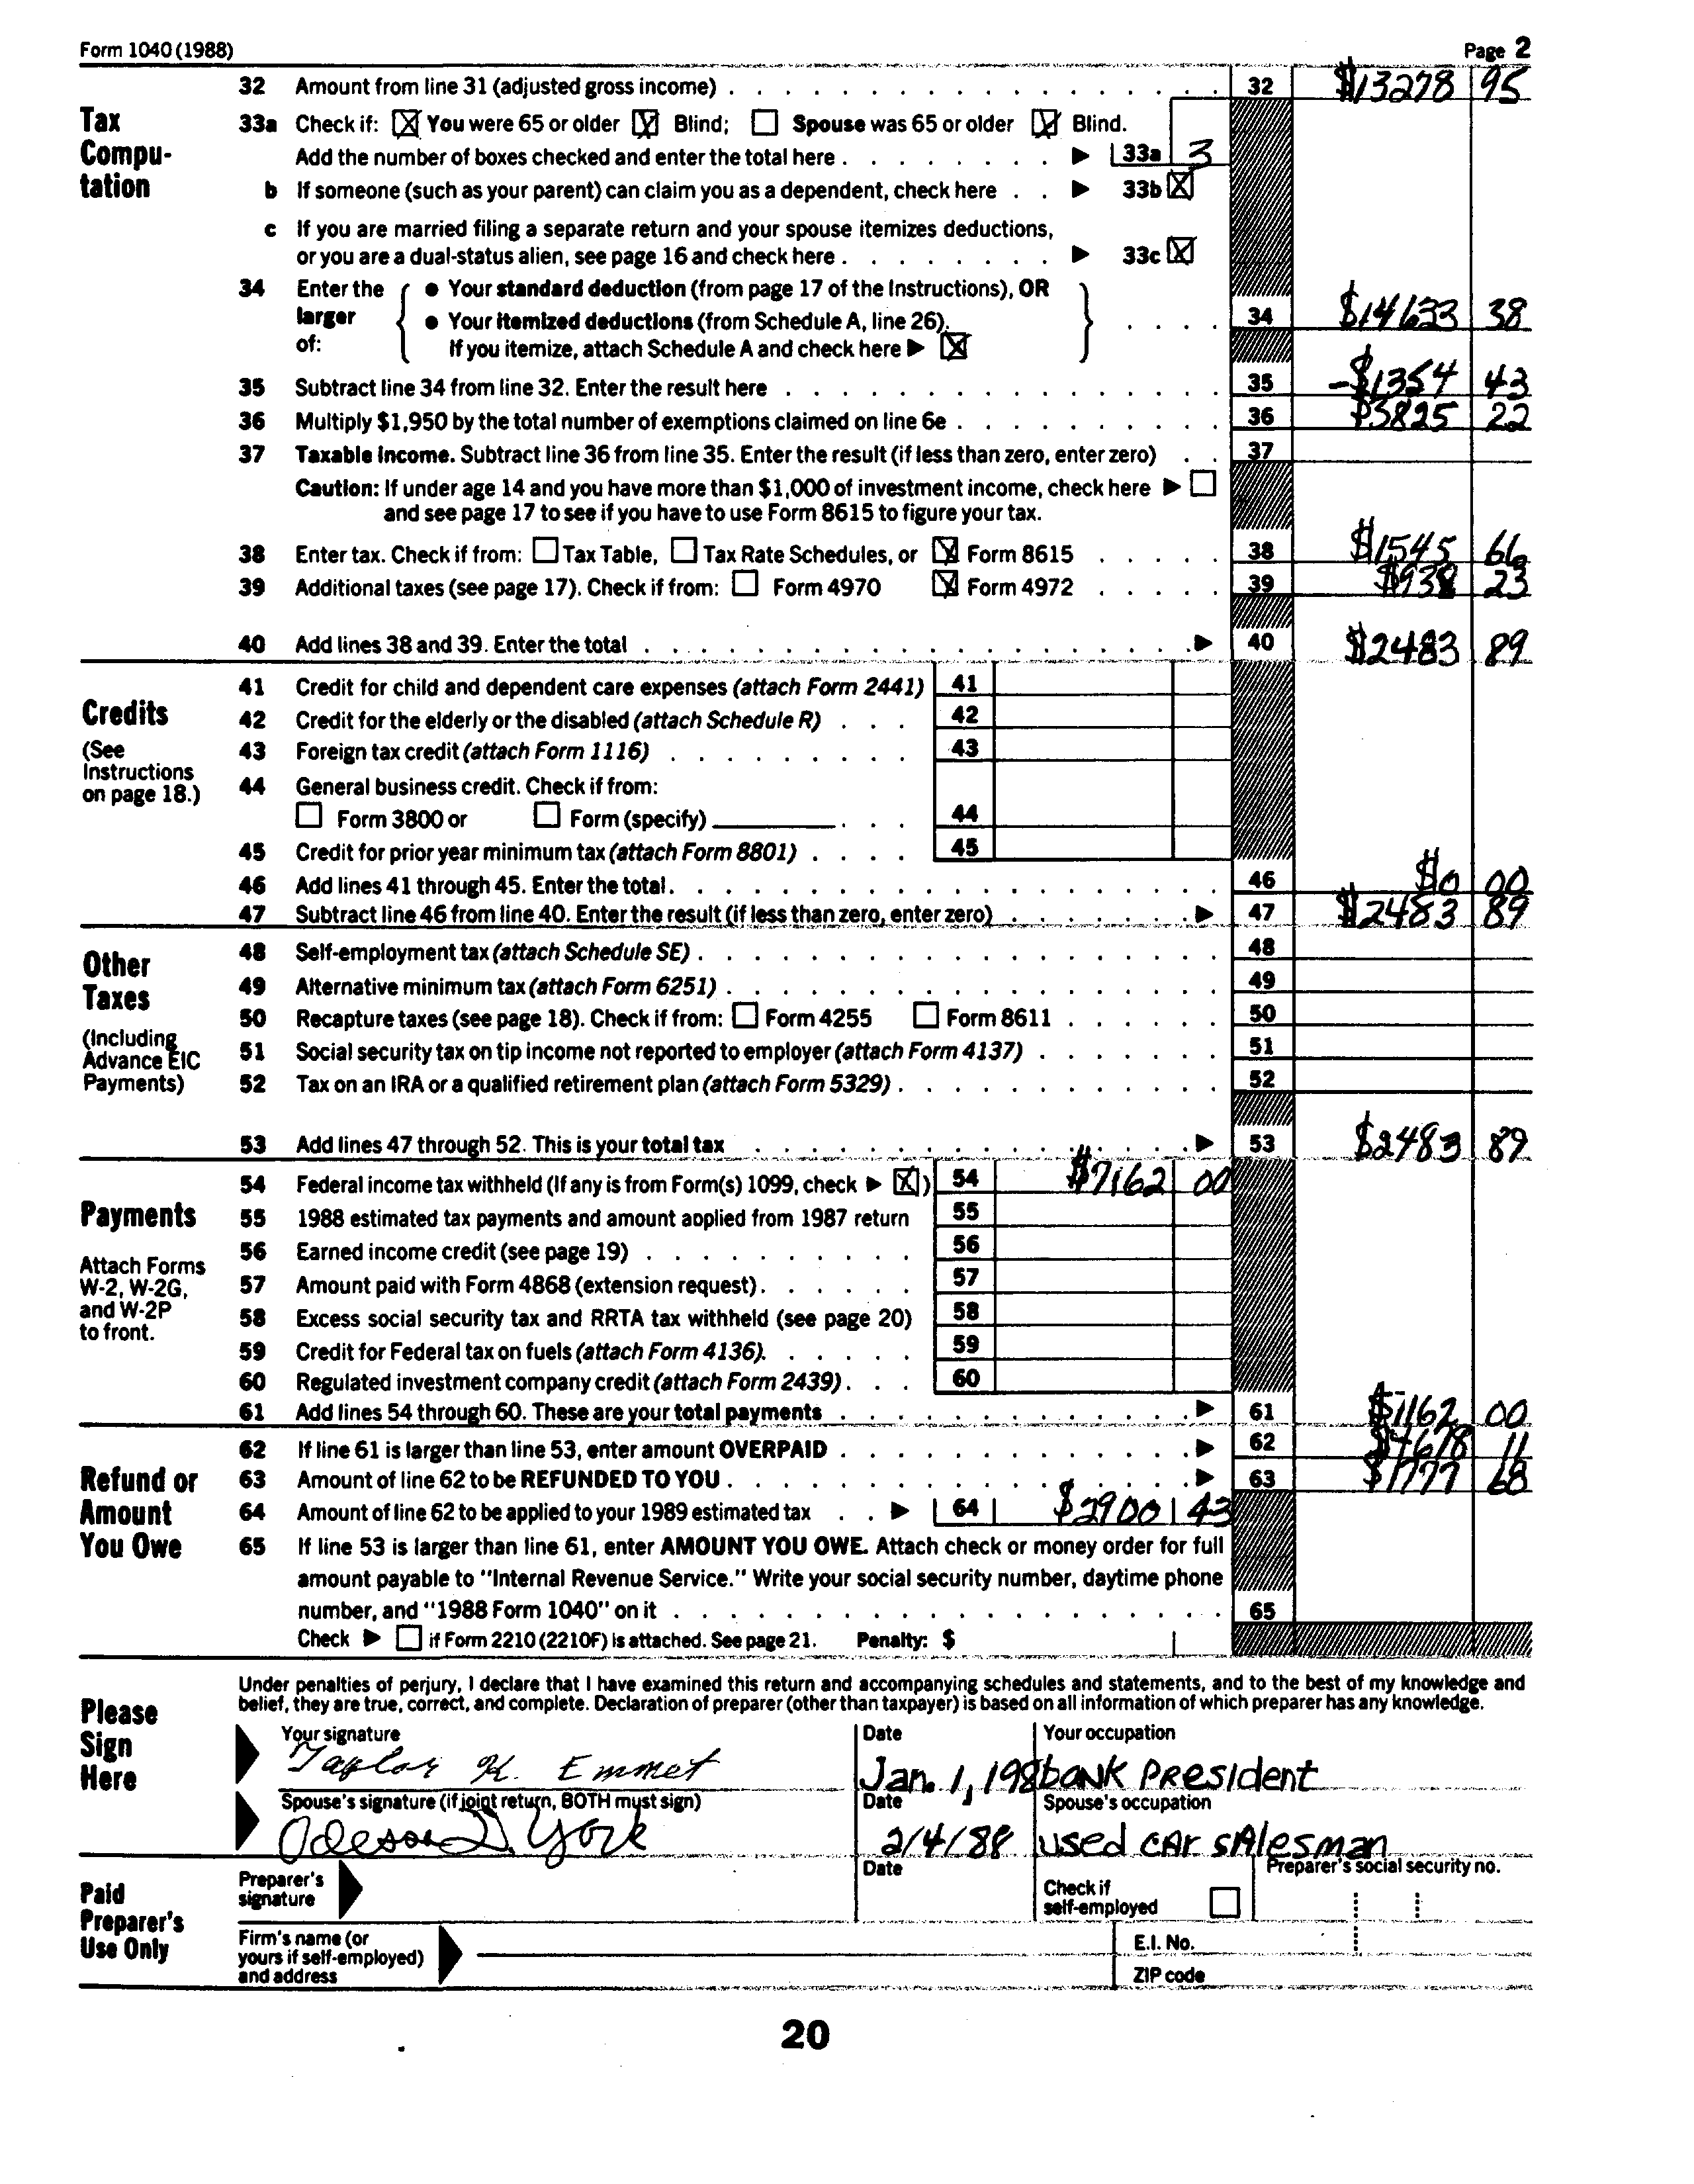 Form 1040 (1988) Page 2
Tax Compu-tation
32 Amount from line 31 (adjusted gross income) 32 $13278 95
33a Check if: ☒ You were 65 or older ☒ Blind; ☐ Spouse was 65 or older ☒ Blind.
Add the number of boxes checked and enter the total here ▶ 33a 3
b If someone (such as your parent) can claim you as a dependent, check here ▶ 33b ☒
c If you are married filing a separate return and your spouse itemizes deductions,
or you are a dual-status alien, see page 16 and check here ▶ 33c ☒
34 Enter the larger of: { • Your standard deduction (from page 17 of the Instructions), OR
• Your itemized deductions (from Schedule A, line 26). } 34 $14633 38
If you itemize, attach Schedule A and check here ▶ ☒
35 Subtract line 34 from line 32. Enter the result here 35 -$1354 43
36 Multiply $1,950 by the total number of exemptions claimed on line 6e 36 $3825 22
37 Taxable income. Subtract line 36 from line 35. Enter the result (if less than zero, enter zero) 37
Caution: If under age 14 and you have more than $1,000 of investment income, check here ▶ ☐
and see page 17 to see if you have to use Form 8615 to figure your tax.
38 Enter tax. Check if from: ☐ Tax Table, ☐ Tax Rate Schedules, or ☒ Form 8615 38 $1545 66
39 Additional taxes (see page 17). Check if from: ☐ Form 4970 ☒ Form 4972 39 $938 23
40 Add lines 38 and 39. Enter the total ▶ 40 $2483 89
Credits
(See Instructions on page 18.)
41 Credit for child and dependent care expenses (attach Form 2441) 41
42 Credit for the elderly or the disabled (attach Schedule R) 42
43 Foreign tax credit (attach Form 1116) 43
44 General business credit. Check if from:
☐ Form 3800 or ☐ Form (specify) 44
45 Credit for prior year minimum tax (attach Form 8801) 45
46 Add lines 41 through 45. Enter the total. 46 $0 00
47 Subtract line 46 from line 40. Enter the result (if less than zero, enter zero) ▶ 47 $2483 89
Other Taxes
(Including Advance EIC Payments)
48 Self-employment tax (attach Schedule SE) 48
49 Alternative minimum tax (attach Form 6251) 49
50 Recapture taxes (see page 18). Check if from: ☐ Form 4255 ☐ Form 8611 50
51 Social security tax on tip income not reported to employer (attach Form 4137) 51
52 Tax on an IRA or a qualified retirement plan (attach Form 5329) 52
53 Add lines 47 through 52. This is your total tax ▶ 53 $2483 89
Payments
Attach Forms W-2, W-2G, and W-2P to front.
54 Federal income tax withheld (If any is from Form(s) 1099, check ▶ ☒) 54 $7162 00
55 1988 estimated tax payments and amount applied from 1987 return 55
56 Earned income credit (see page 19) 56
57 Amount paid with Form 4868 (extension request) 57
58 Excess social security tax and RRTA tax withheld (see page 20) 58
59 Credit for Federal tax on fuels (attach Form 4136) 59
60 Regulated investment company credit (attach Form 2439) 60
61 Add lines 54 through 60. These are your total payments ▶ 61 $7162 00
Refund or Amount You Owe
62 If line 61 is larger than line 53, enter amount OVERPAID ▶ 62 $4678 11
63 Amount of line 62 to be REFUNDED TO YOU ▶ 63 $1777 68
64 Amount of line 62 to be applied to your 1989 estimated tax ▶ 64 $2900 43
65 If line 53 is larger than line 61, enter AMOUNT YOU OWE. Attach check or money order for full
amount payable to "Internal Revenue Service." Write your social security number, daytime phone
number, and "1988 Form 1040" on it 65
Check ▶ ☐ if Form 2210 (2210F) is attached. See page 21. Penalty: $
Please Sign Here
Under penalties of perjury, I declare that I have examined this return and accompanying schedules and statements, and to the best of my knowledge and
belief, they are true, correct, and complete. Declaration of preparer (other than taxpayer) is based on all information of which preparer has any knowledge.
Your signature Date Your occupation
Taylor K. Emmet Jan. 1, 198 bank President
Spouse's signature (if joint return, BOTH must sign) Date Spouse's occupation
Odeson D. York 2/4/88 used car salesman
Paid Preparer's Use Only
Preparer's signature Date Check if self-employed ☐ Preparer's social security no.
Firm's name (or yours if self-employed) and address E.I. No.
ZIP code
20